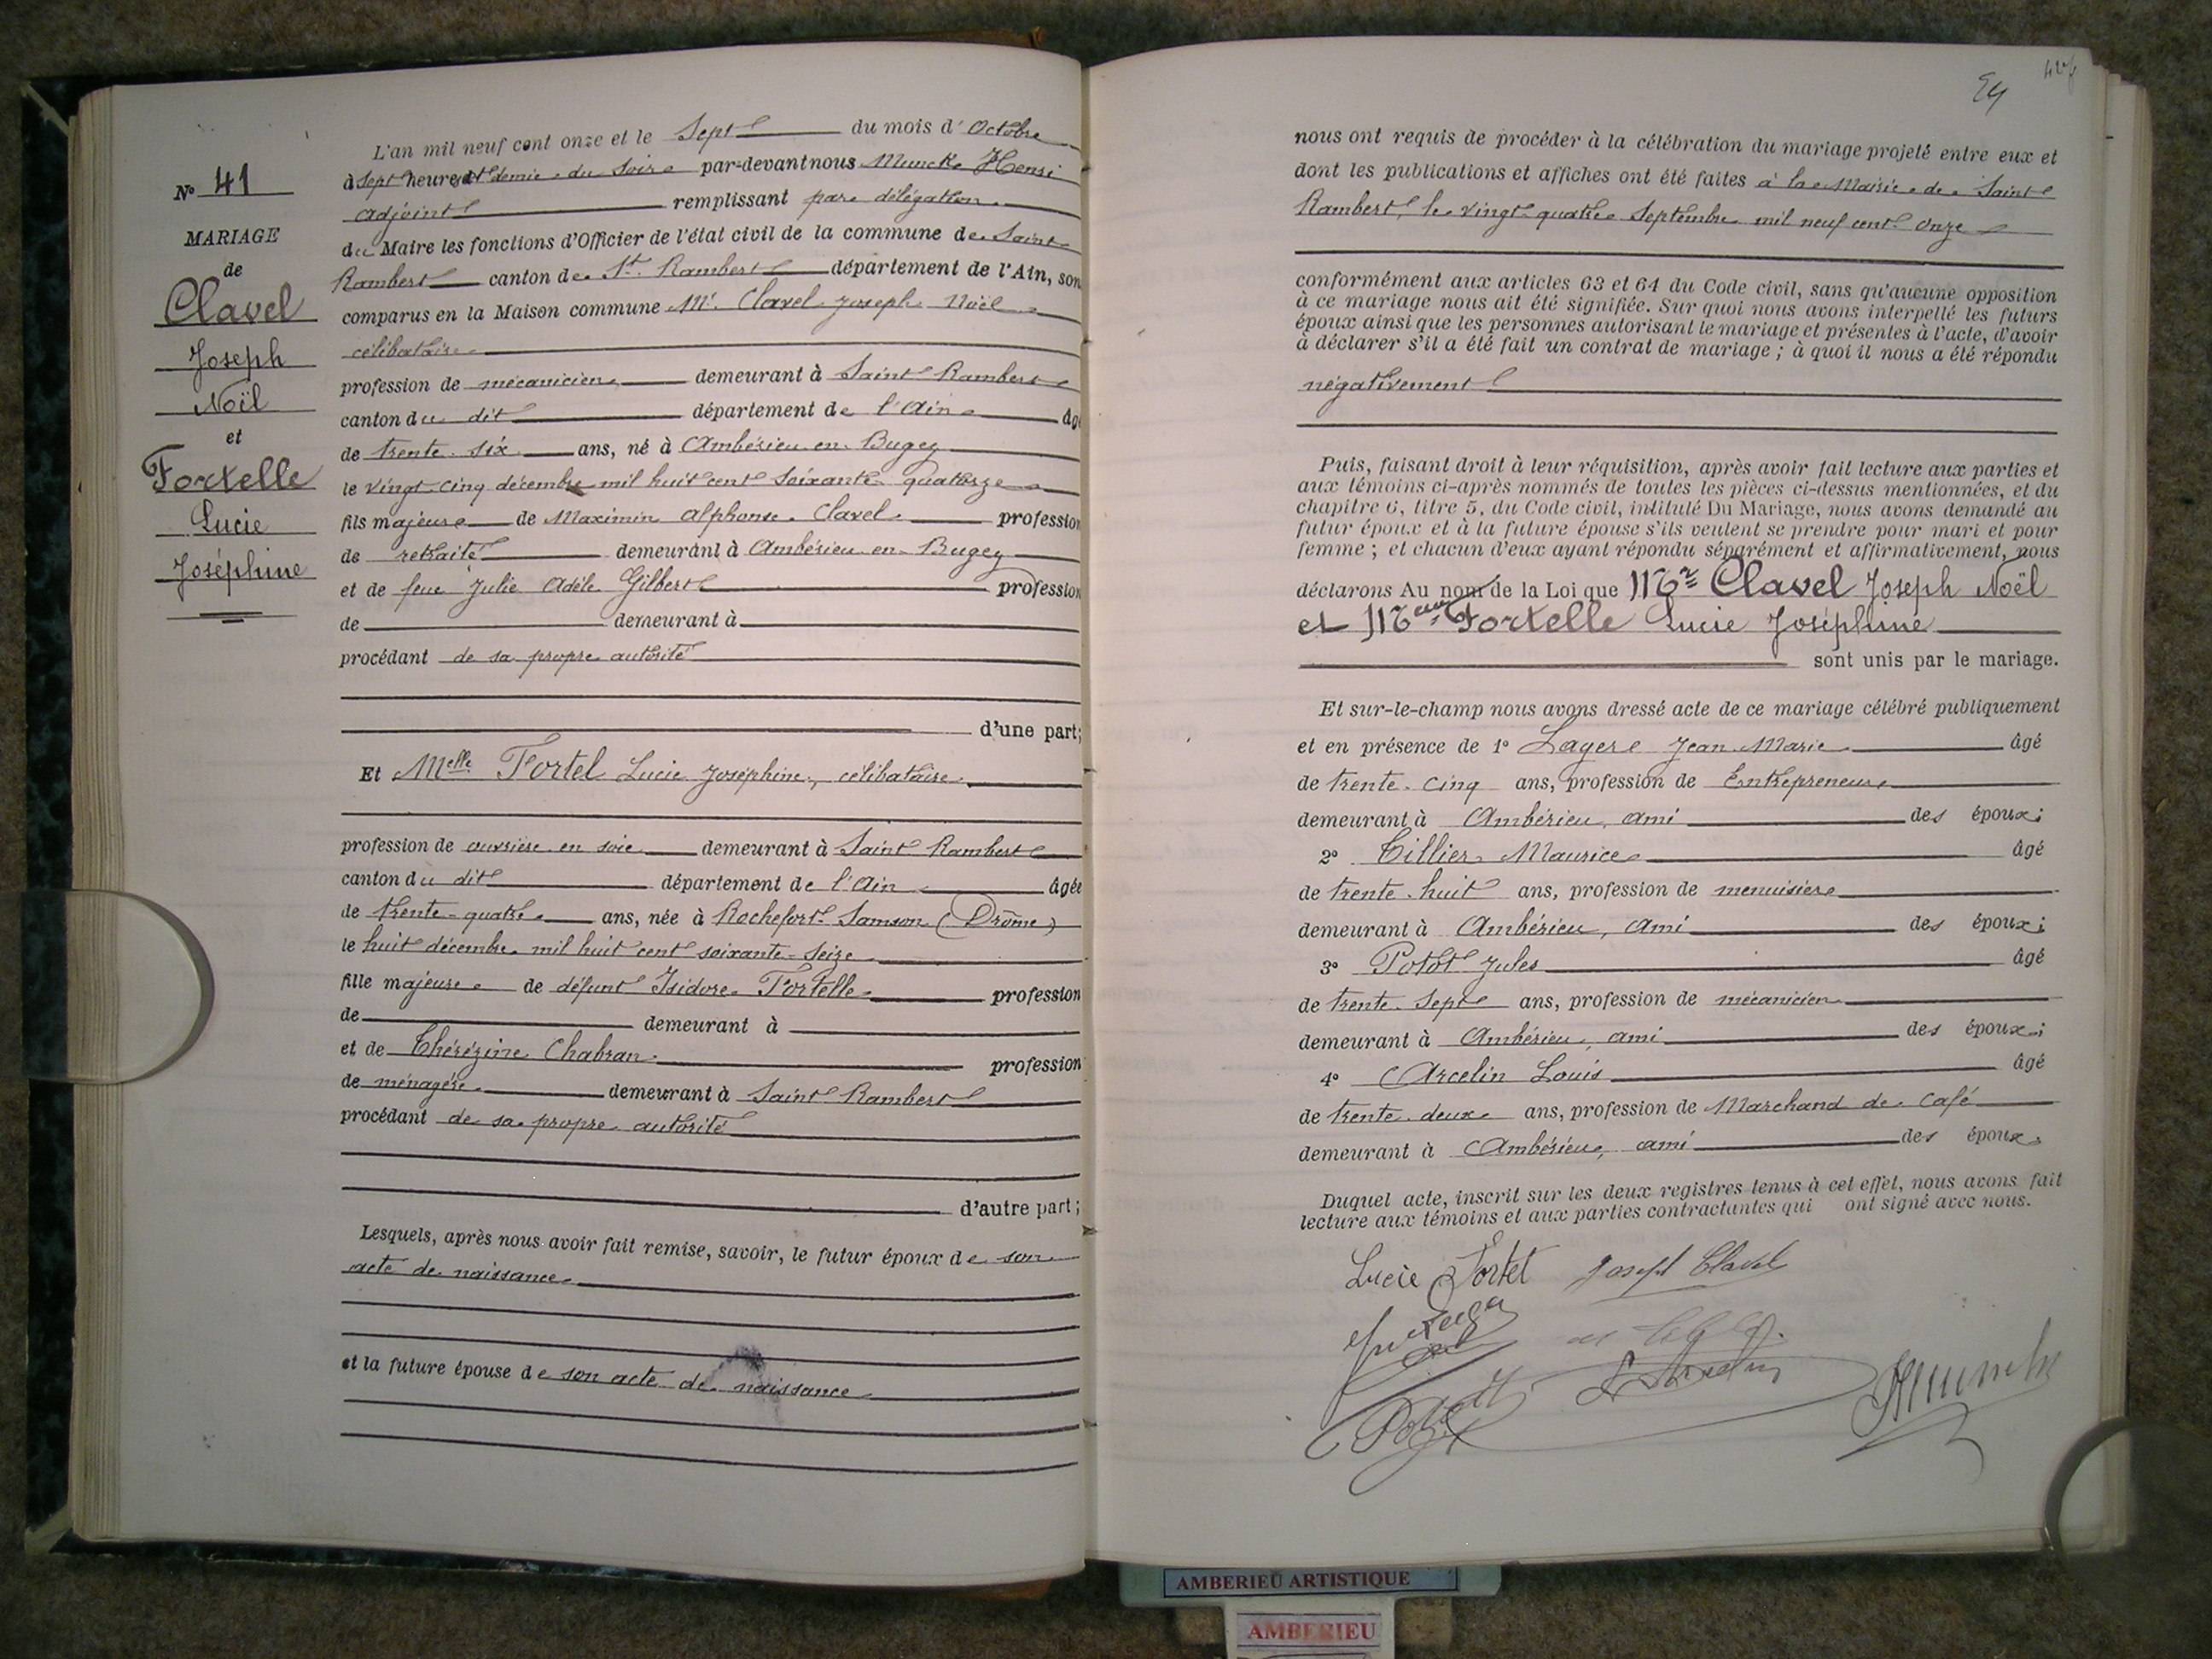 N° 41
MARIAGE
de
Clavel
Joseph
Noël
et
Fortelle
Lucie
Joséphine
L'an mil neuf cent onze et le Sept du mois d'Octobre
à Sept heures et demie du Soir par-devant nous Munck Henri
adjoint remplissant par délégation
du Maire les fonctions d'Officier de l'état civil de la commune de Saint
Rambert canton de St. Rambert département de l'Ain, son
comparus en la Maison commune Mr. Clavel Joseph Noël
célibataire
profession de mécanicien demeurant à Saint Rambert
canton du dit département de l'Ain âgé
de trente six ans, né à Ambérieu en Bugey
le vingt cinq décembre mil huit cent soixante quatorze
fils majeur de Maximin Alphonse Clavel profession
de retraité demeurant à Ambérieu en Bugey
et de feue Julie Adèle Gilbert profession
de demeurant à
procédant de sa propre autorité
d'une part;
Et Melle Fortel Lucie Joséphine, célibataire
profession de ouvrière en soie demeurant à Saint Rambert
canton du dit département de l'Ain âgée
de trente-quatre ans, née à Rochefort Samson (Drôme)
le huit décembre mil huit cent soixante-seize
fille majeure de défunt Isidore Fortelle profession
de demeurant à
et de Thérézine Chabran profession
de ménagère demeurant à Saint Rambert
procédant de sa propre autorité
d'autre part;
Lesquels, après nous avoir fait remise, savoir, le futur époux de son
acte de naissance
et la future épouse de son acte de naissance
nous ont requis de procéder à la célébration du mariage projeté entre eux et
dont les publications et affiches ont été faites à la Mairie de Saint
Rambert, le vingt quatre Septembre mil neuf cent onze
conformément aux articles 63 et 64 du Code civil, sans qu'aucune opposition
à ce mariage nous ait été signifiée. Sur quoi nous avons interpellé les futurs
époux ainsi que les personnes autorisant le mariage et présentes à l'acte, d'avoir
à déclarer s'il a été fait un contrat de mariage; à quoi il nous a été répondu
négativement
Puis, faisant droit à leur réquisition, après avoir fait lecture aux parties et
aux témoins ci-après nommés de toutes les pièces ci-dessus mentionnées, et du
chapitre 6, titre 5, du Code civil, intitulé Du Mariage, nous avons demandé au
futur époux et à la future épouse s'ils veulent se prendre pour mari et pour
femme; et chacun d'eux ayant répondu séparément et affirmativement, nous
déclarons Au nom de la Loi que Mr Clavel Joseph Noël
et Fortelle Lucie Joséphine
sont unis par le mariage.
Et sur-le-champ nous avons dressé acte de ce mariage célébré publiquement
et en présence de 1° Lager Jean Marie âgé
de trente-cinq ans, profession de Entrepreneur
demeurant à Ambérieu, ami des époux;
2° Tillier Maurice âgé
de trente-huit ans, profession de menuisier
demeurant à Ambérieu, ami des époux;
3° Potot Jules âgé
de trente-Sept ans, profession de mécanicien
demeurant à Ambérieu, ami des époux;
4° Arcelin Louis âgé
de trente-deux ans, profession de Marchand de Café
demeurant à Ambérieu, ami des époux
Duquel acte, inscrit sur les deux registres tenus à cet effet, nous avons fait
lecture aux témoins et aux parties contractantes qui ont signé avec nous.
Lucie Fortel Joseph Clavel
AMBERIEU ARTISTIQUE
AMBERIEU